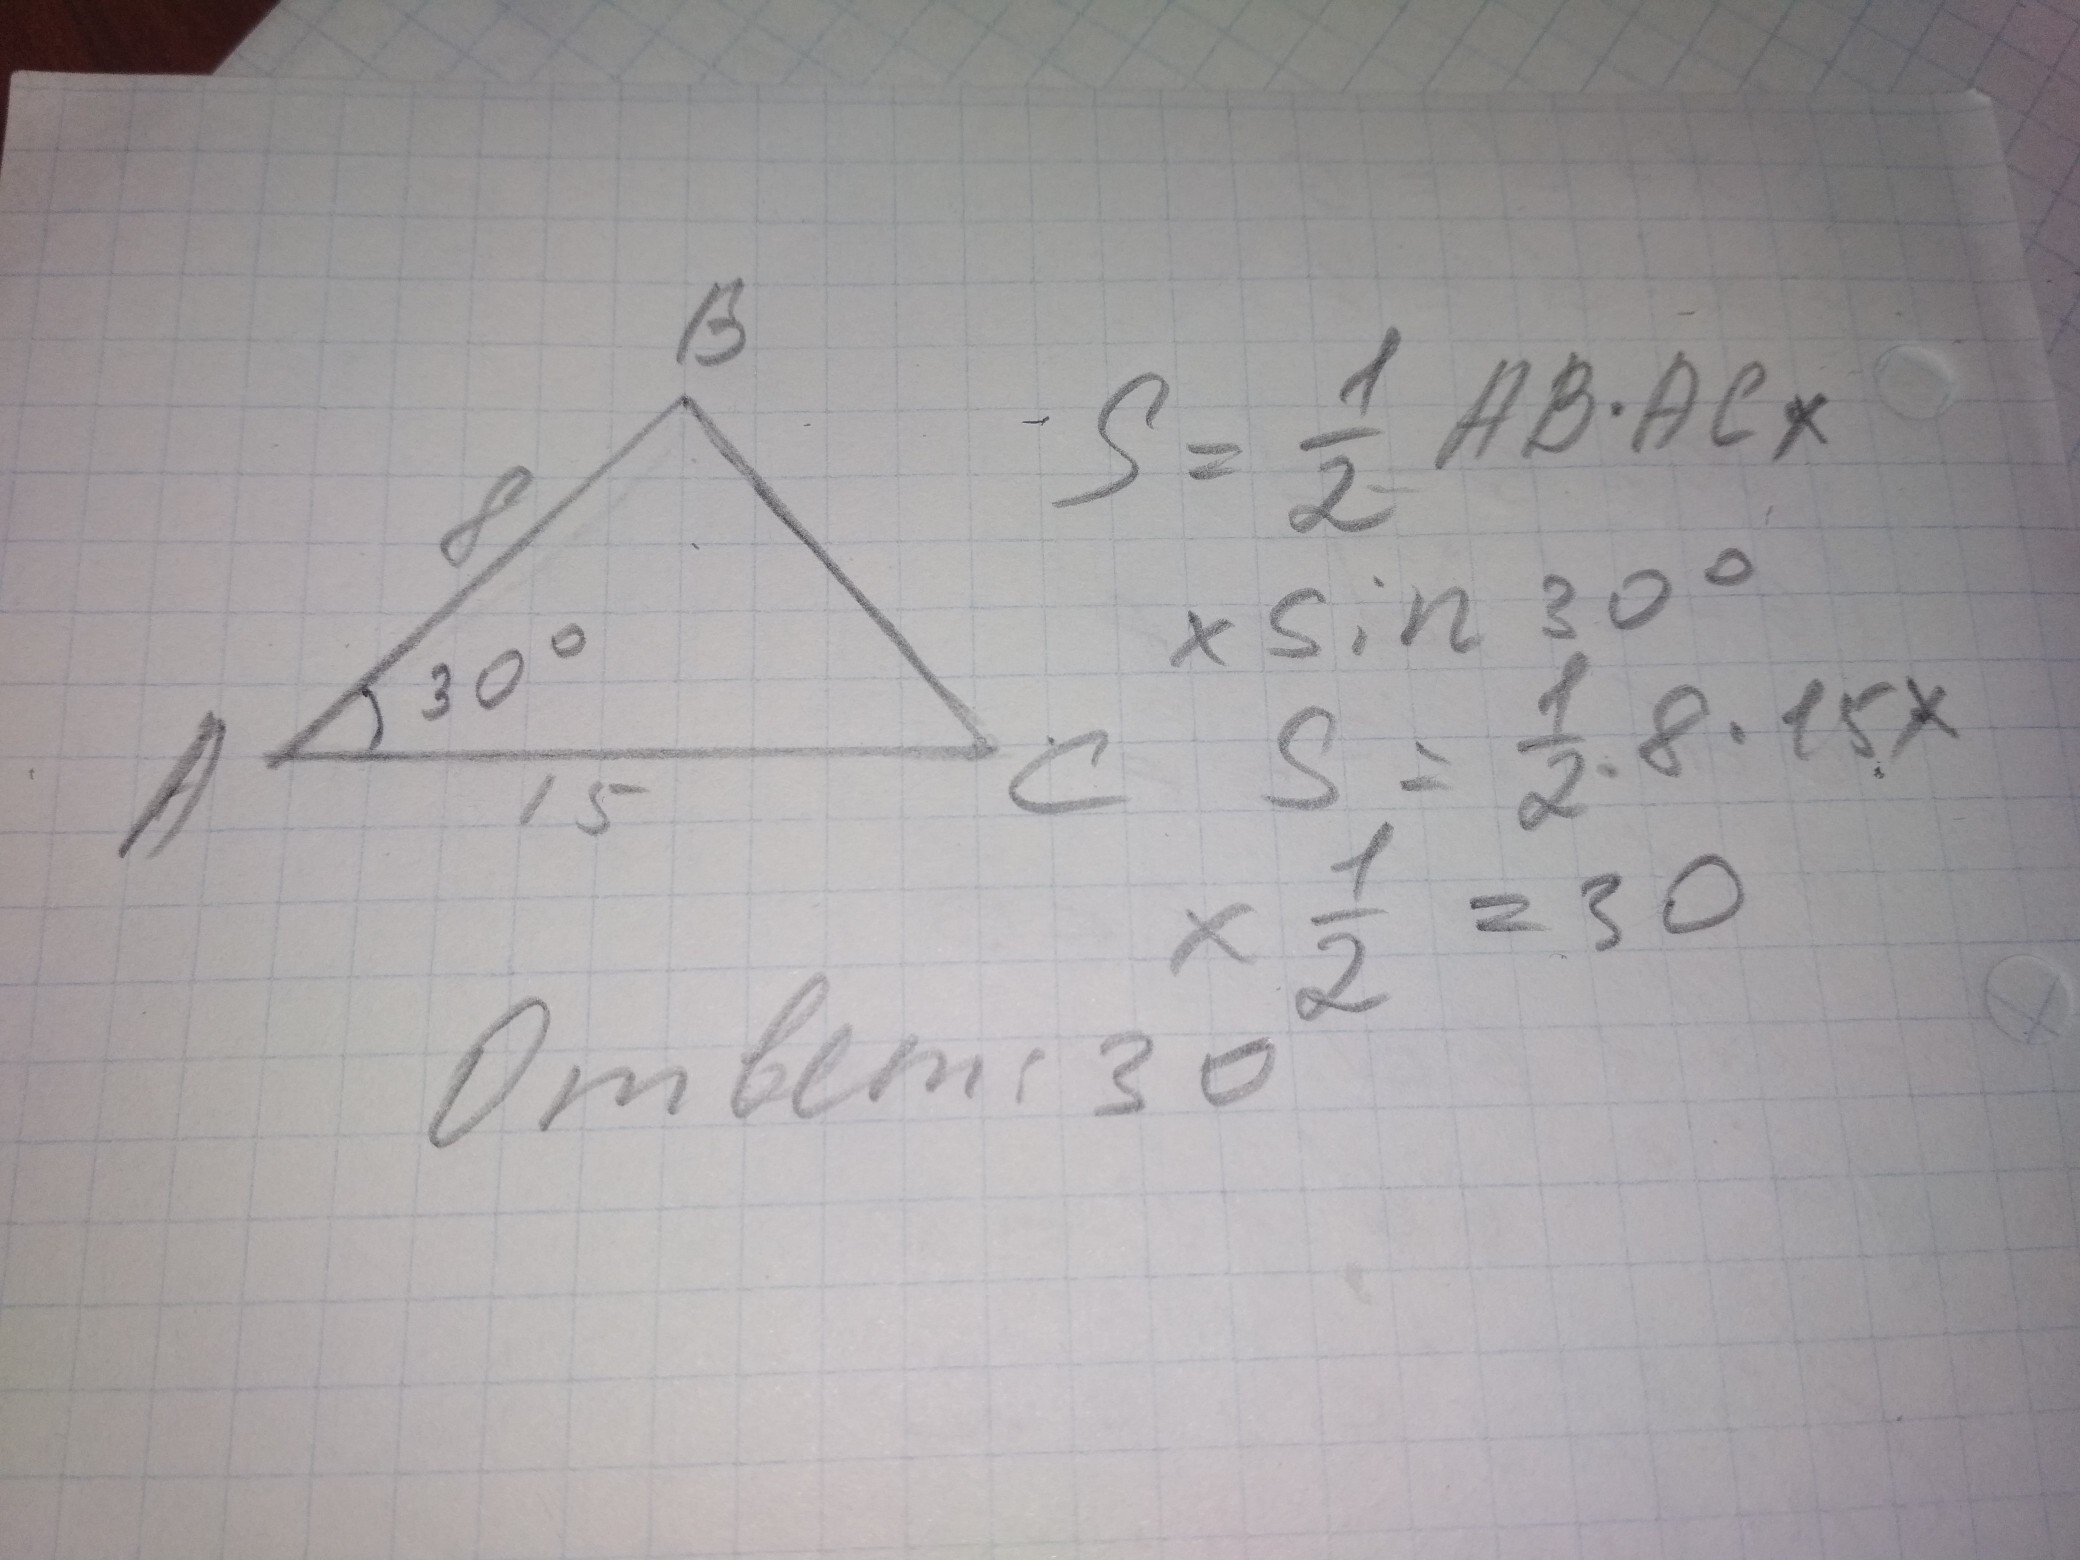 B
8
30°
A
15
C
S = 1/2 AB · AC ×
× sin 30°
S = 1/2 · 8 · 15 ×
× 1/2 = 30
Ответ: 30